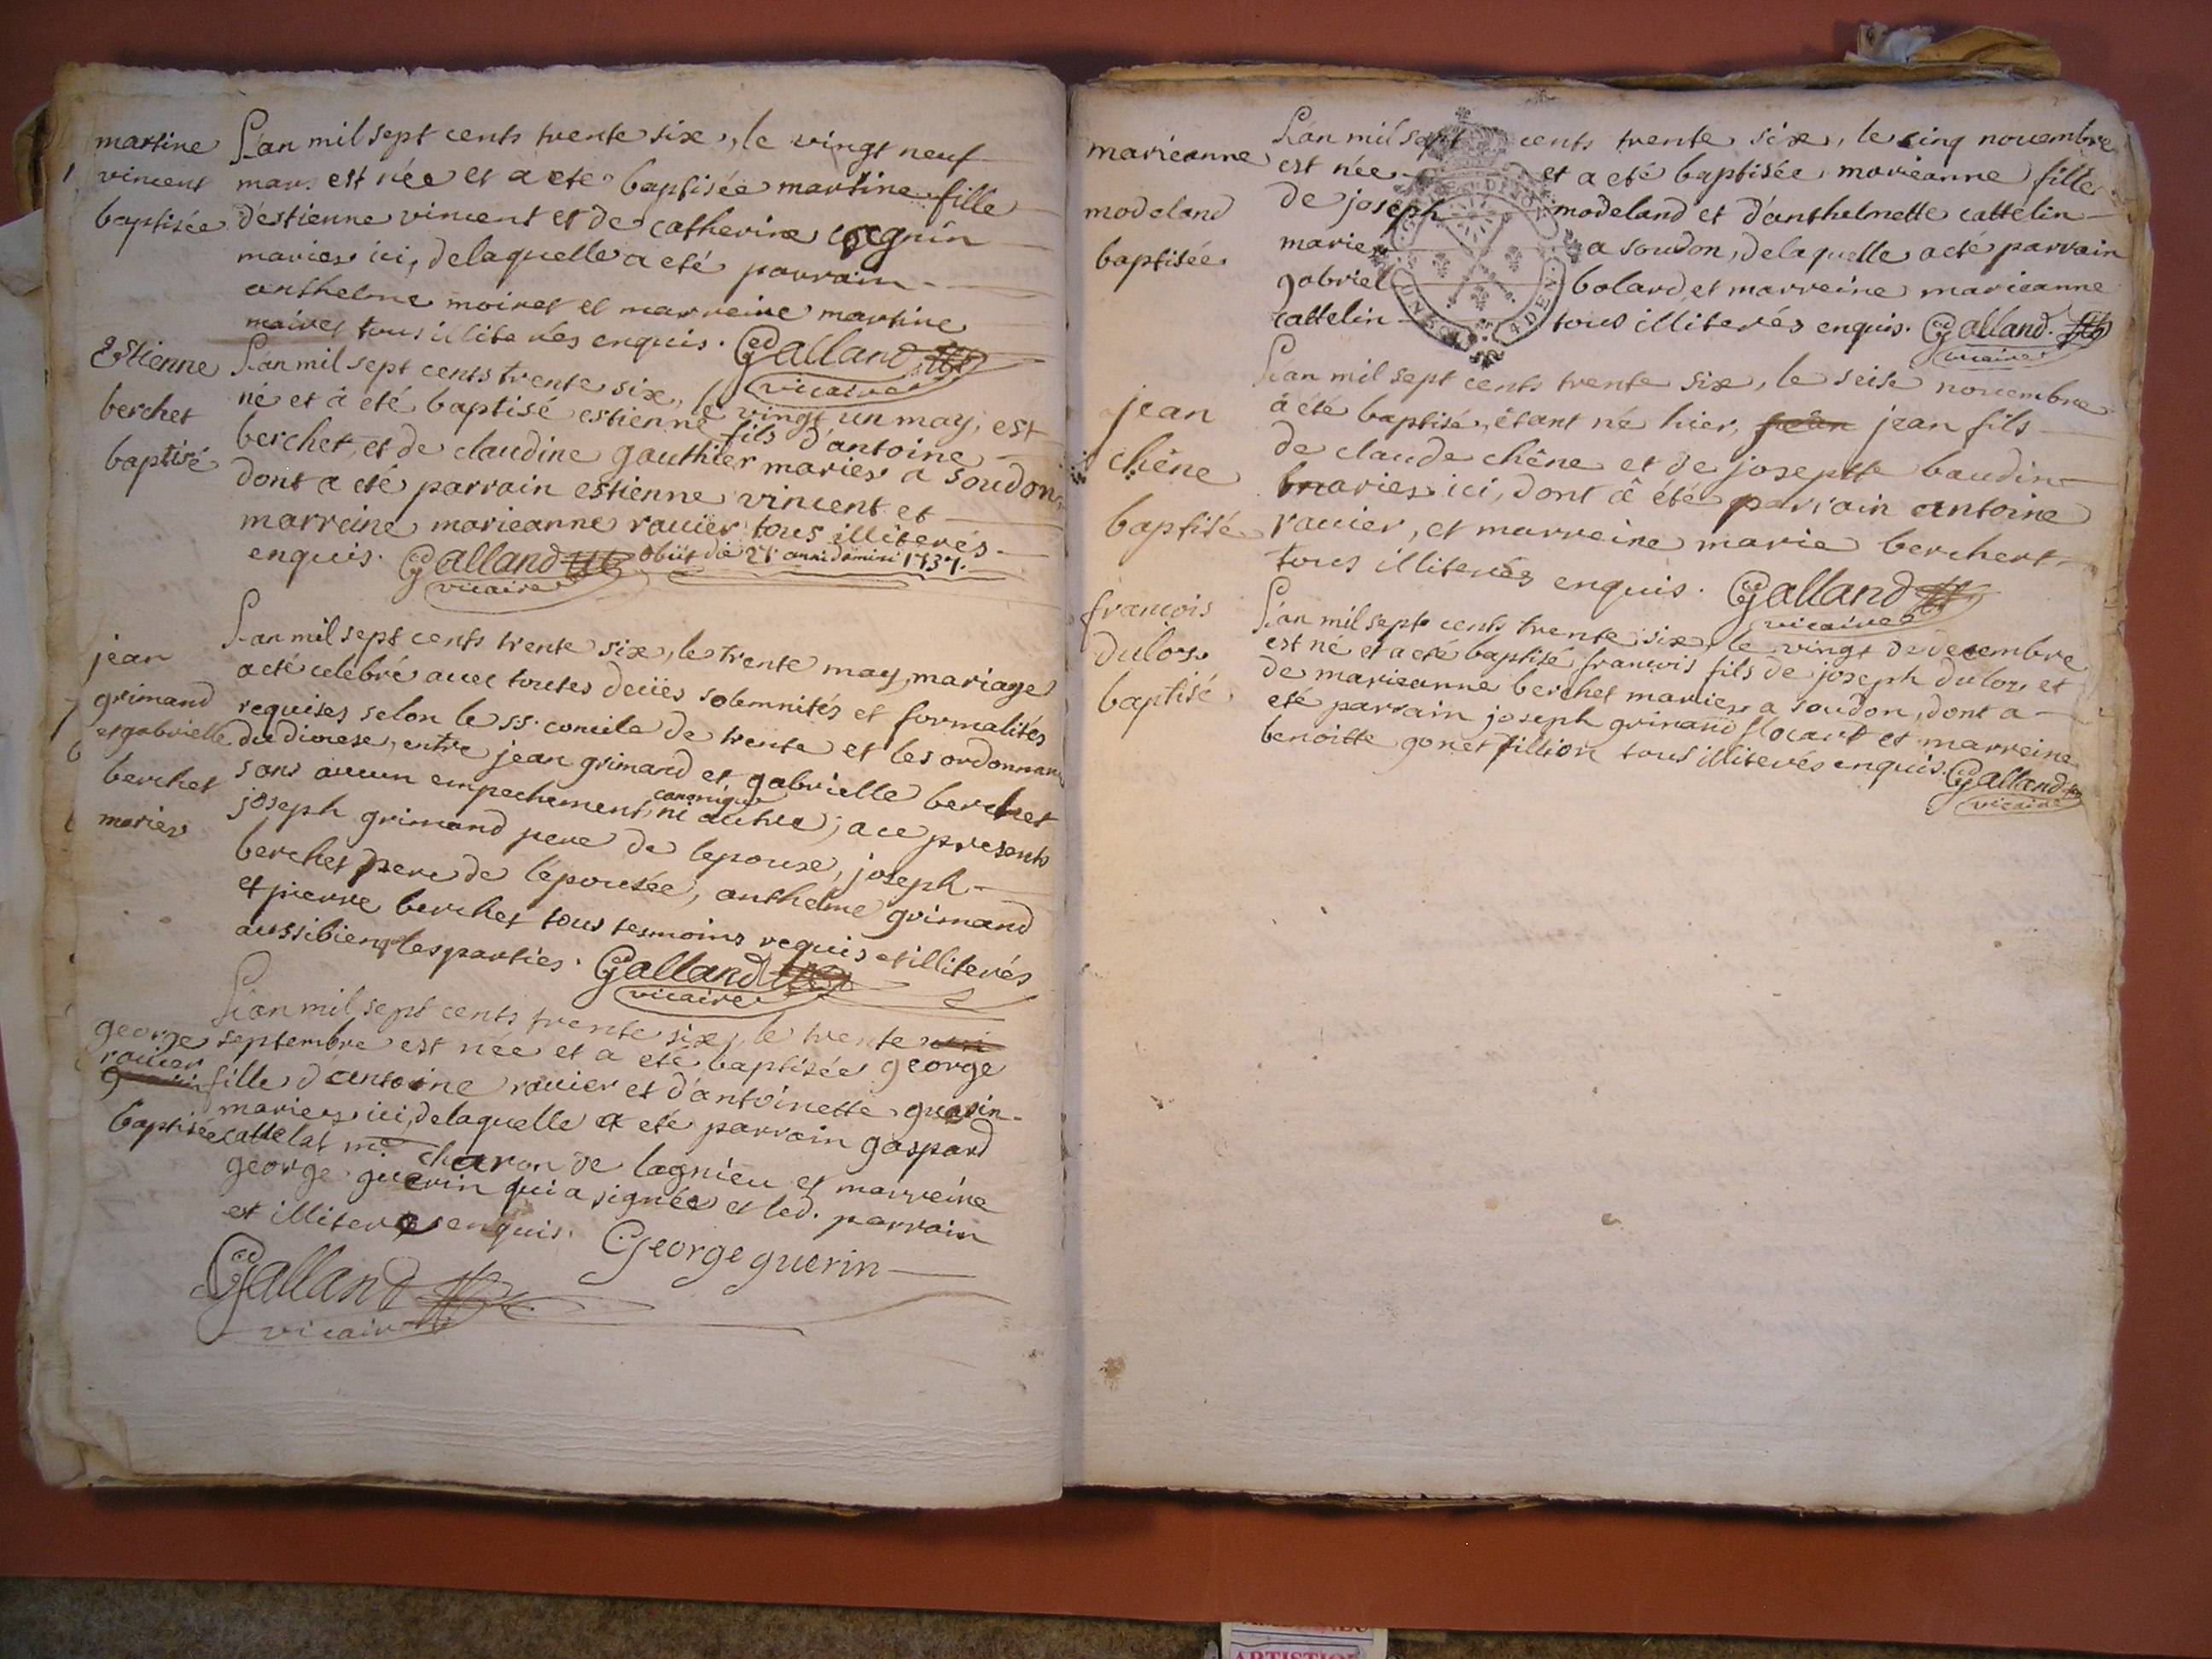 martine
vincent
baptisée
L'an mil sept cents trente six, le vingt neuf
mars est née et a eté baptisée martine fille
d'estienne vincent et de catherine cognin
maries ici, delaquelle a eté parrain
anthelme moiret et marreine martine
moiret tous illiterés enquis. Galland
vicaire
Estienne
berchet
baptisé
L'an mil sept cents trente six, le vingt un may, est
né et à été baptisé estienne fils d'antoine
berchet, et de claudine gauthier maries a soudon
dont a eté parrain estienne vincent et
marreine marieanne rauier tous illiterés
enquis. Galland obiit die 21 anni domini 1737.
vicaire
jean
grimand
et gabrielle
berchet
maries
L'an mil sept cents trente six, le trente may, mariage
a eté celebré avec toutes deües solemnités et formalités
requises selon le ss. concile de trente et les ordonnan
du diocese, entre jean grimand et gabrielle berchet
sans aucun empechement canonique ni autre; a ce presents
joseph grimand pere de lepoux, joseph
berchet pere de lepousée, anthelme grimand
et pierre berchet tous temoins requis et illiterés
aussibienq les parties. Galland
vicaire
george
rauier
baptisée
L'an mil sept cents trente six, le trente
septembre est née et a eté baptisée george
fille d'antoine rauier et d'antoinette guerin
maries ici, delaquelle a eté parrain gaspard
cattelat me charon de lagnieu et marreine
george guerin qui a signée et led. parrain
et illiteré enquis. George guerin
Galland
vicaire
marieanne
modeland
baptisée
L'an mil sept cents trente six, le cinq novembre
est née et a eté baptisée marieanne fille
de joseph modeland et d'anthelmette cattelin
maries a soudon, delaquelle a eté parrain
gabriel bolard et marreine marieanne
cattelin tous illiterés enquis. Galland
vicaire
jean
chêne
baptisé
L'an mil sept cents trente six, le seise novembre
à été baptisé, étant né hier, jean fils
de claude chêne et de josepte baudin
maries ici, dont à été parrain antoine
rauier, et marreine marie berchert
tous illiterés enquis. Galland
vicaire
francois
dulors
baptisé
L'an mil sept cents trente six, le vingt de decembre
est né et a eté baptisé francois fils de joseph dulors et
de marieanne berchet maries a soudon, dont a
eté parrain joseph grimand flocard et marreine
benoitte gonet fillion tous illiterés enquis. Galland
vicaire